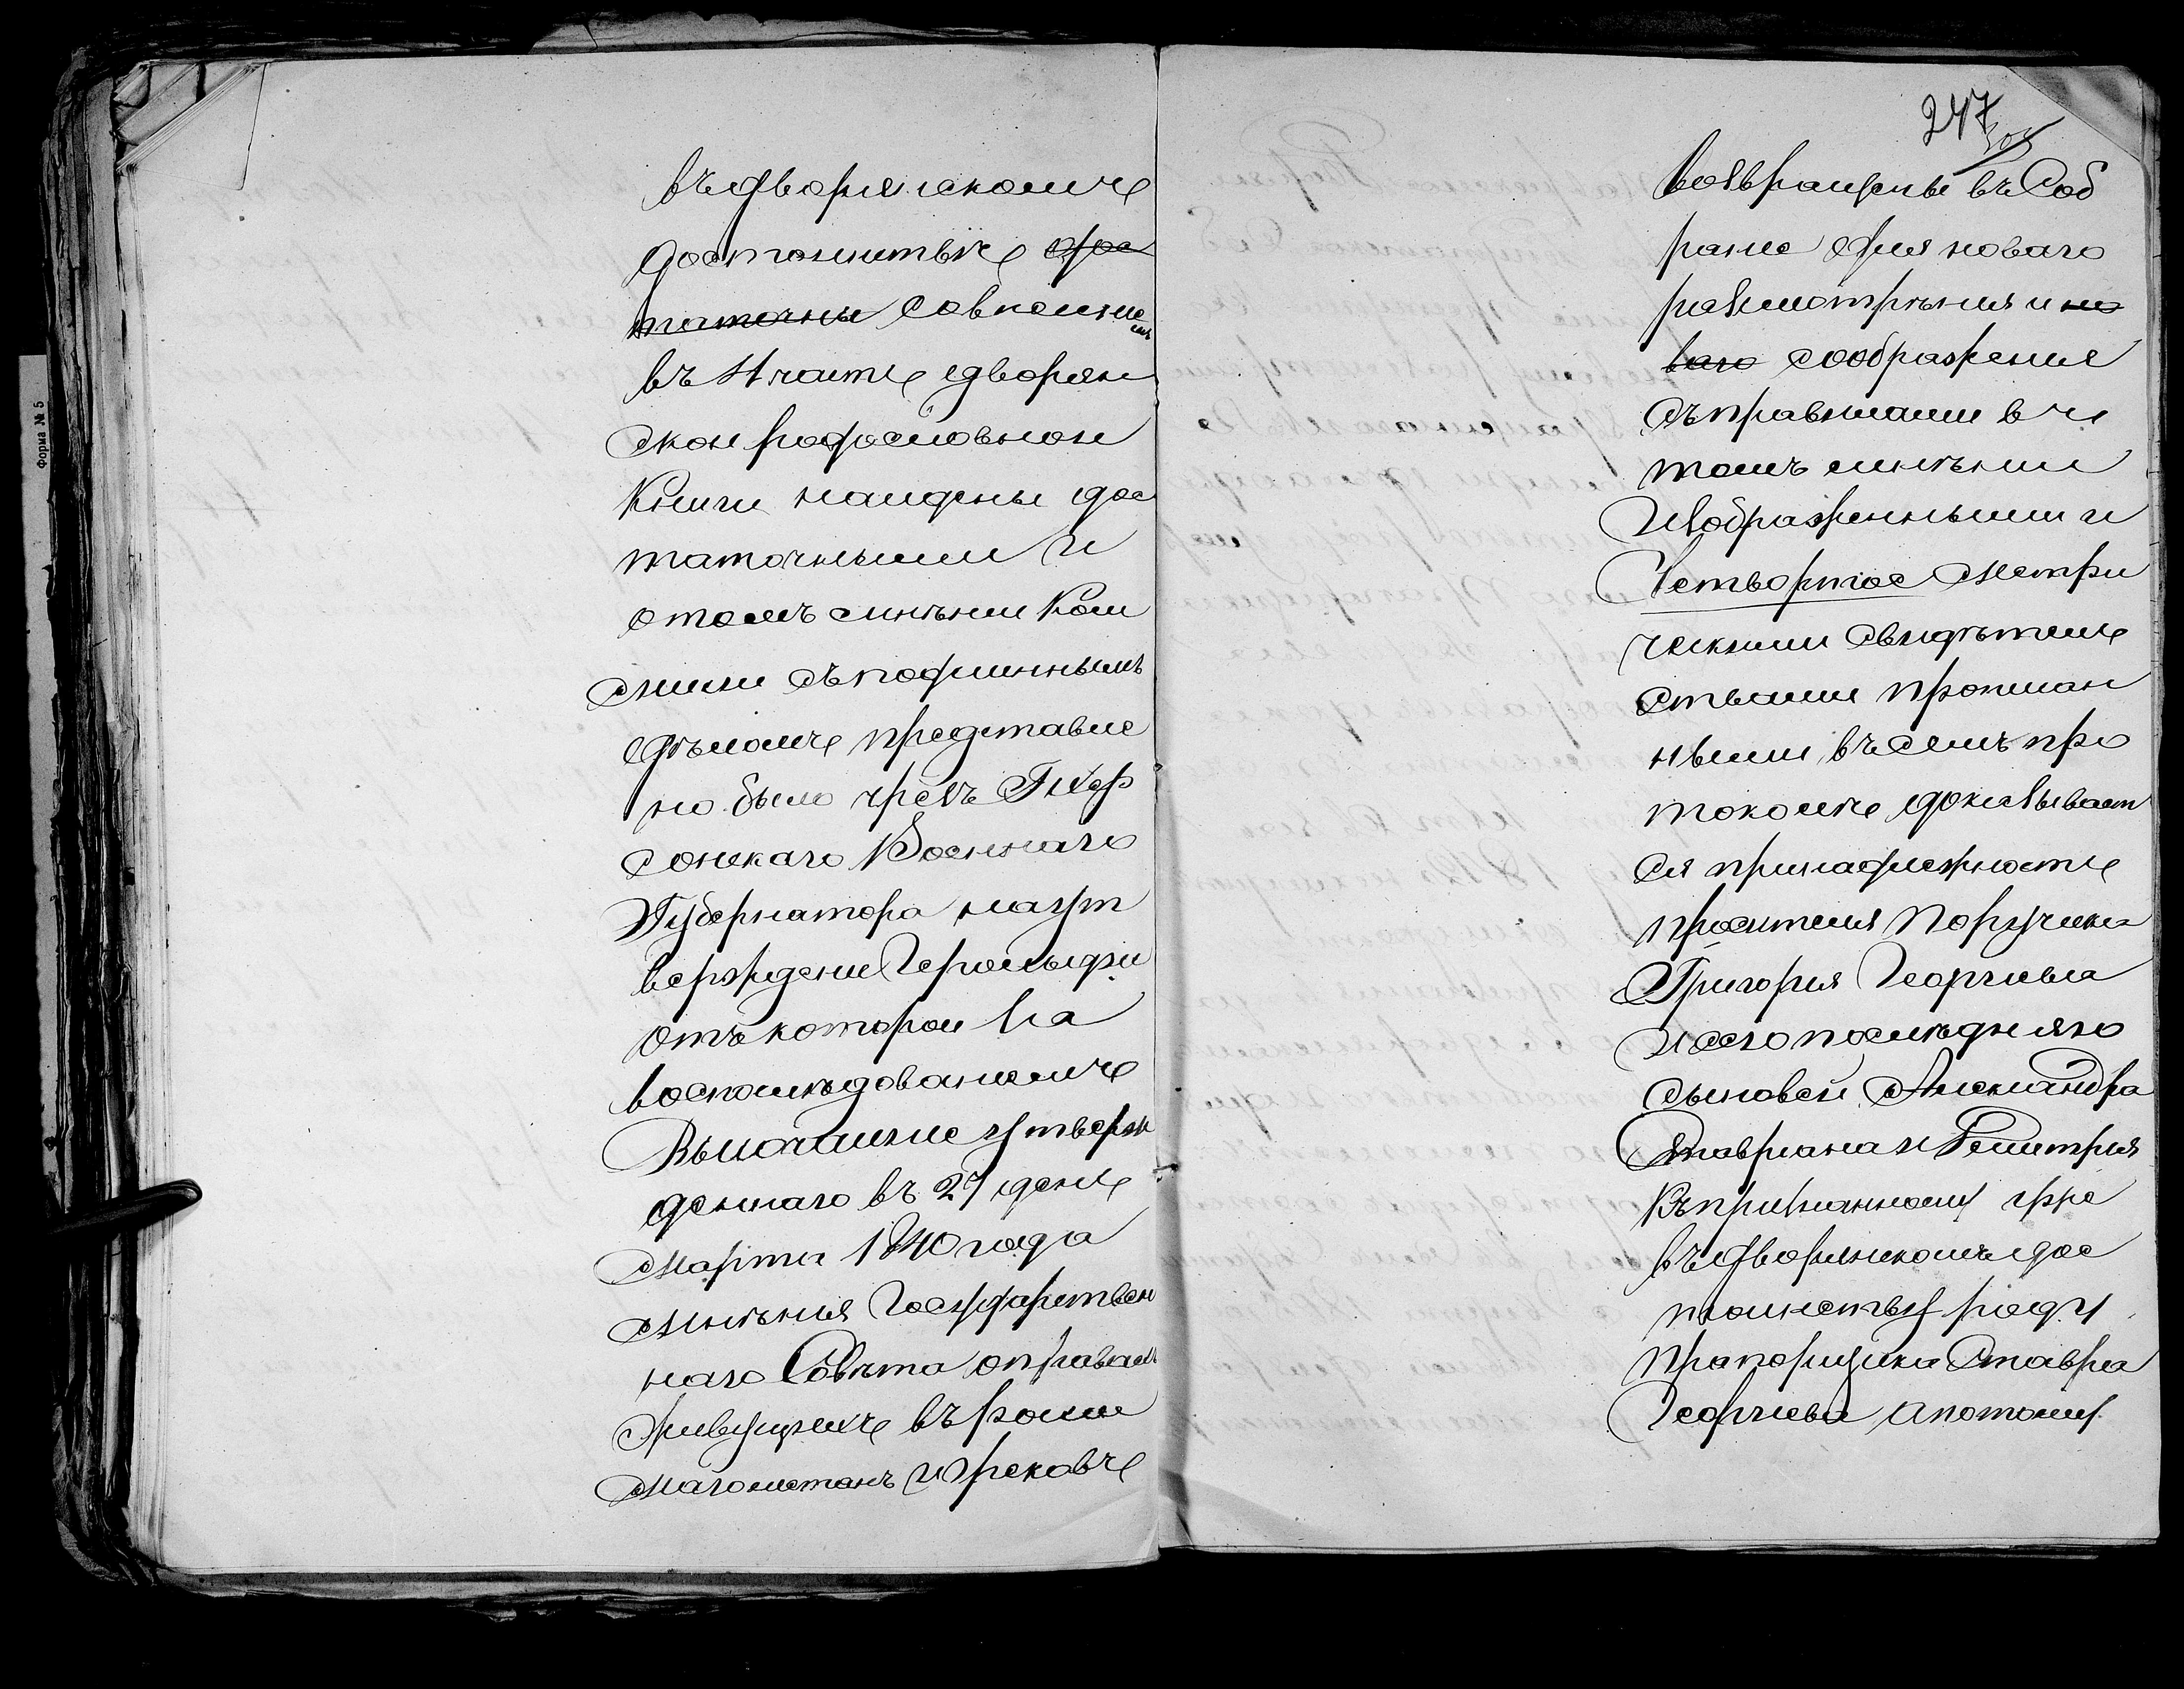 въ дворянскомъ
достоинствѣ дос
таточны совнесением
въ II часть дворян
ской родословной
Книги найдены дос
таточными и
о томъ мнѣнии Ком
мисии съ подлиннымъ
дѣломъ представле
но было чрезъ Херсонскаго Военнаго
Губернатора на ут
верждение Герольдии
отъ которой на
воспослѣдованиемъ
Высочайше утверж
деннаго въ 27 день
Марта 1840 года
мнѣния Государствен
наго Совѣта о правахъ
живущихъ въ России
Магометанъ и Грековъ
247
возвращены въ Соб
рание для новаго
разсмотрѣния и но
ваго соображения
съ правилами въ
томъ мнѣнии
Изображенными и
Четвертое Метри
ческими свидѣтель
ствами прописан
ными въ семъ про
токолѣ доказывает
ся принадлежность
просителя Поручика
Григория Георгиева
и его послѣдняго
сыновей Александра
Ставриана и Димитрия
Къ признанному уже
въ дворянскомъ дос
тоинствѣ роду
прапорщика Ставра
Георгиева а потому